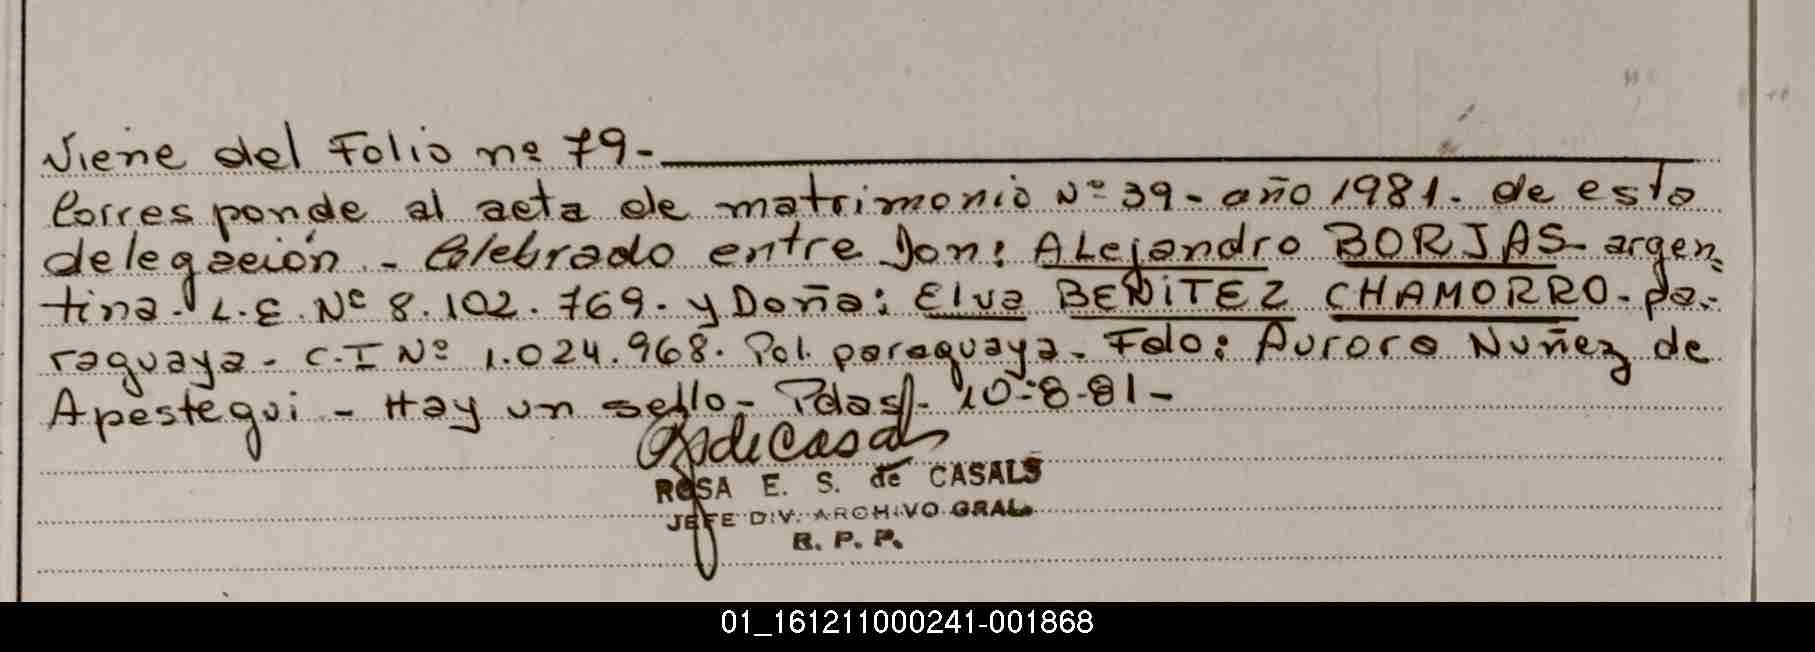 Viene del Folio nº 79-
Corresponde al acta de matrimonio Nº 39- año 1981. de esta
delegación - Celebrado entre Don: ALejandro BORJAS- argen
tina. L.E. Nº 8.102.769. y Doña: Elva BENiTEZ CHAMORRO- pa-
raguaya - C.I Nº 1.024.968. Pol. paraguaya. Fdo: Aurora Nuñez de
Apestegui - Hay un sello- Pdas/- 10-8-81-
de Casals
ROSA E. S. de CASALS
JEFE DIV. ARCHIVO GRAL.
R. P. P.
01_161211000241-001868